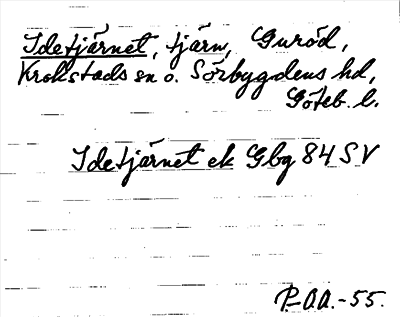 Idetjärnet, tjärn, Guröd,
Krokstads sn o. Sörbygdens hd,
Göteb. l.
Idetjärnet ek Gbg 84 SV
P-O.A.-55.